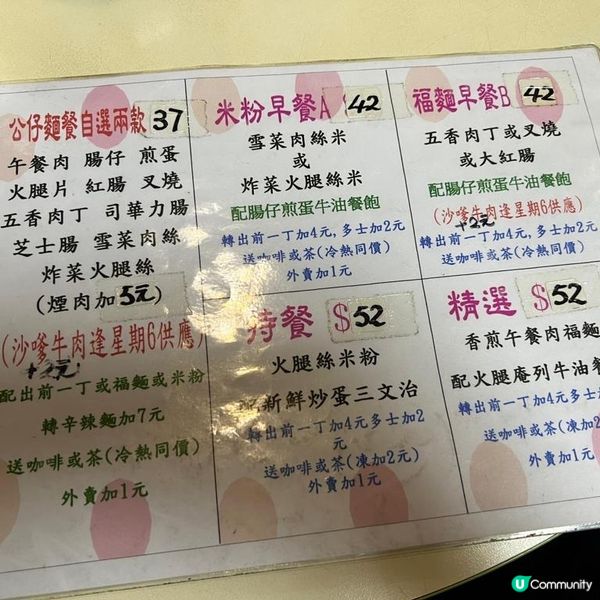 公仔麵餐自選兩款 37
午餐肉 腸仔 煎蛋
火腿片 紅腸 叉燒
五香肉丁 司華力腸
芝士腸 雪菜肉絲
炸菜火腿絲
(煙肉加 5元)
(沙嗲牛肉逢星期6供應)
+2元
配出前一丁或福麵或米粉
轉辛辣麵加7元
送咖啡或茶(冷熱同價)
外賣加1元
米粉早餐A 42
雪菜肉絲米
或
炸菜火腿絲米
配腸仔煎蛋牛油餐飽
轉出前一丁加4元,多士加2元
送咖啡或茶(冷熱同價)
外賣加1元
福麵早餐B 42
五香肉丁或叉燒
或大紅腸
配腸仔煎蛋牛油餐飽
(沙嗲牛肉逢星期6供應)
+2元
轉出前一丁加4元,多士加2元
送咖啡或茶(冷熱同價)
外賣加1元
特餐 $52
火腿絲米粉
配新鮮炒蛋三文治
轉出前一丁加4元多士加2
元
送咖啡或茶(凍加2元)
外賣加1元
精選 $52
香煎午餐肉福麵
配火腿庵列牛油餐
轉出前一丁加4元多士加2
元
送咖啡或茶(凍加2
外賣加1元
U Community